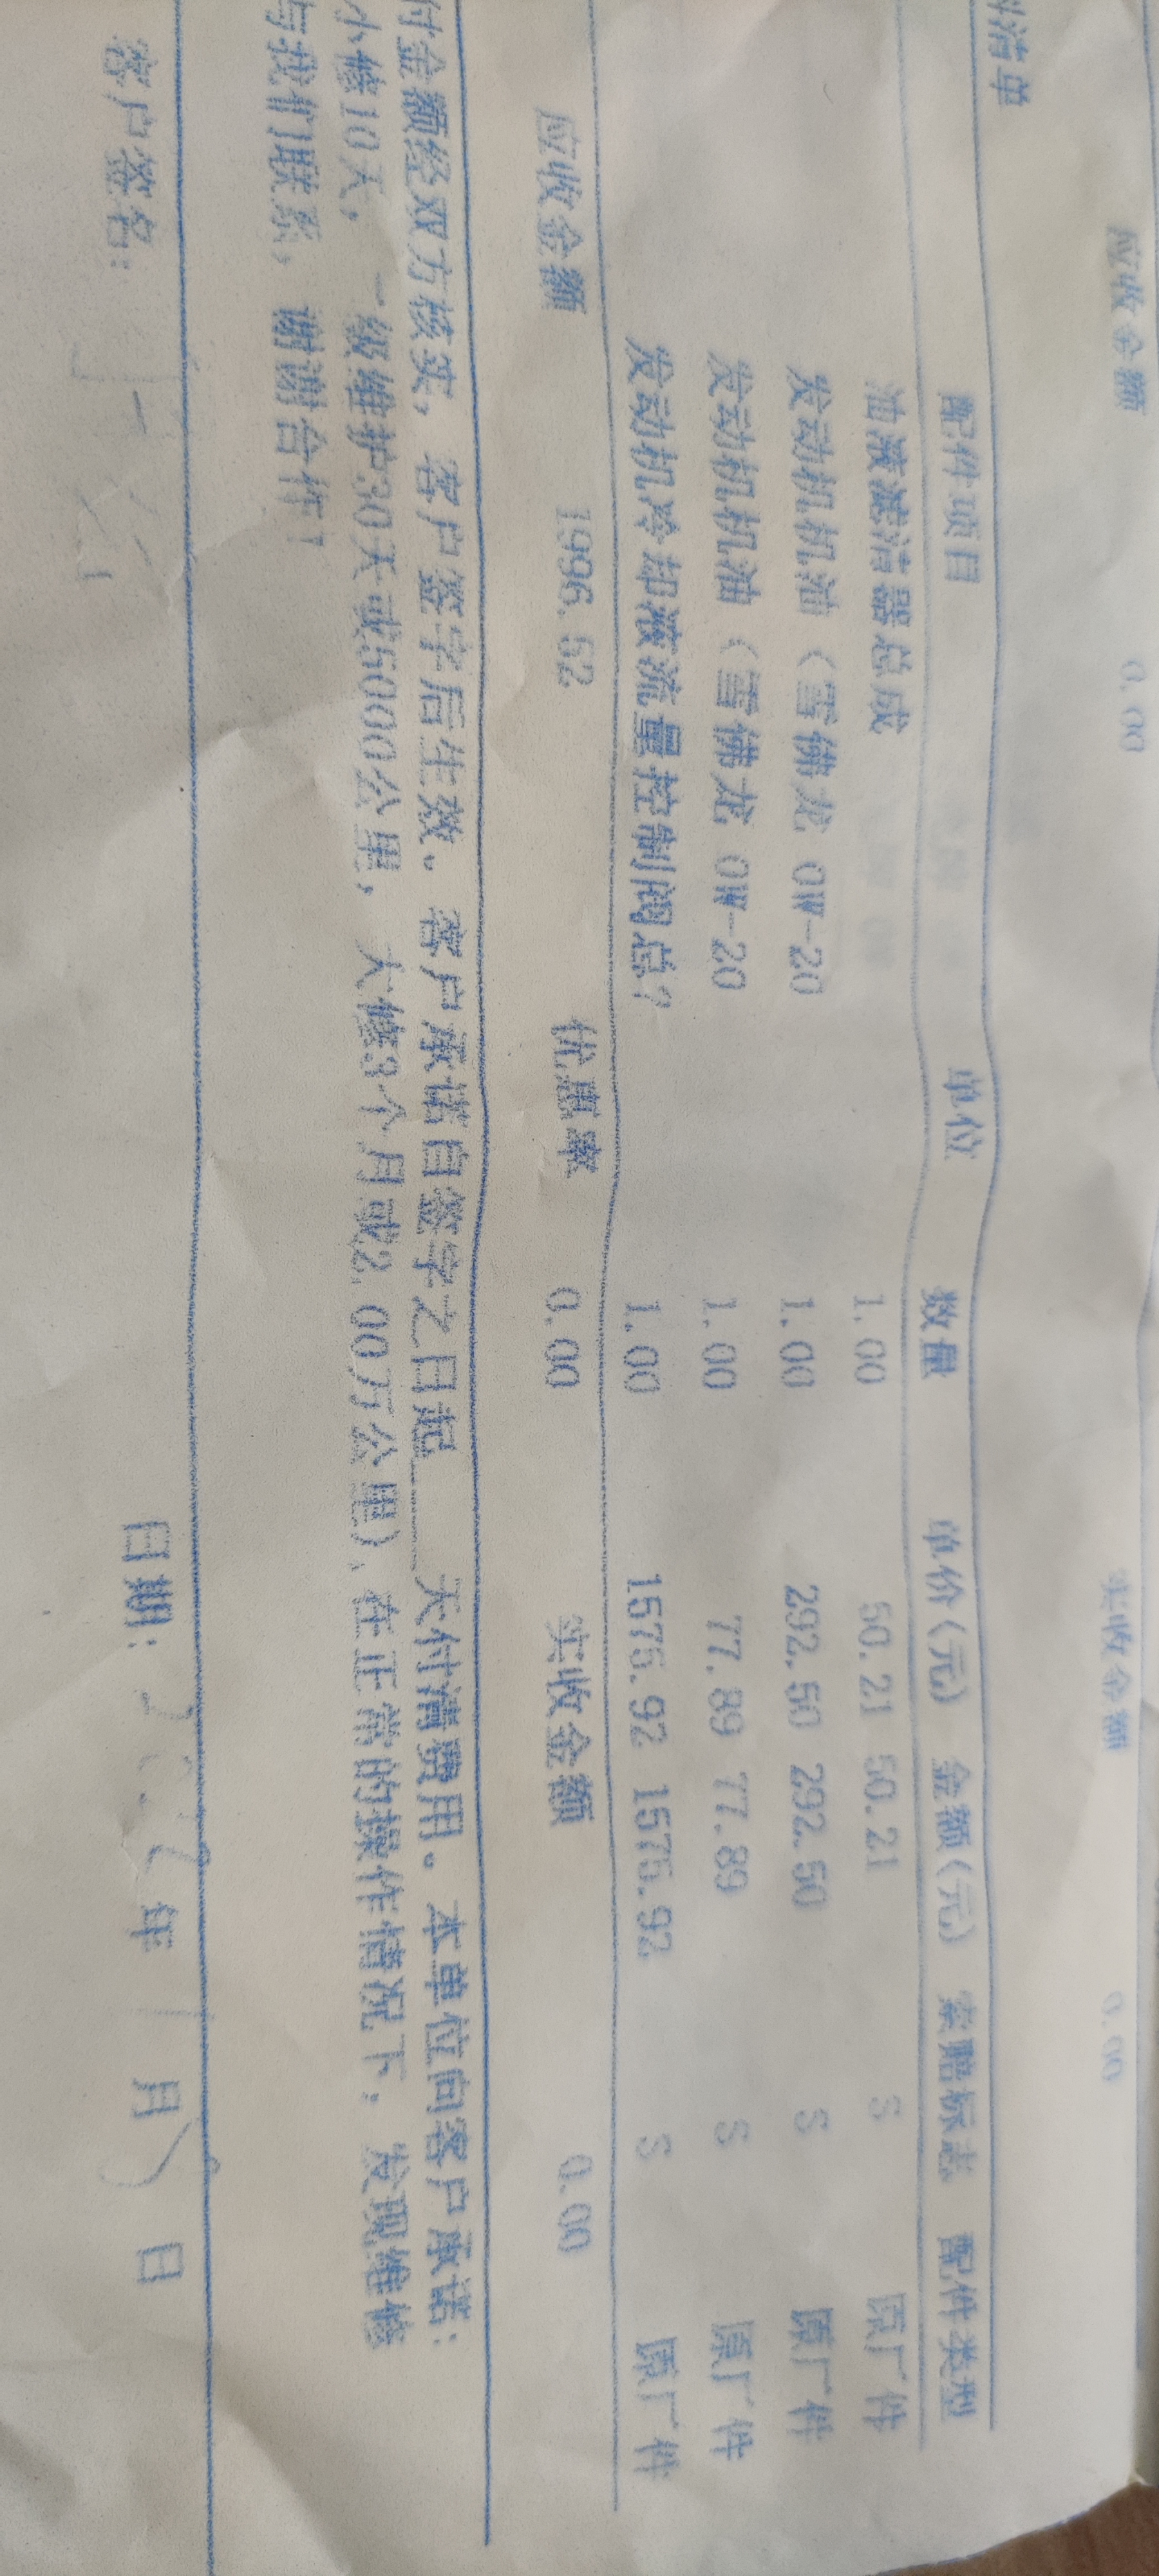 应收金额 0.00 实收金额 0.00
料清单
配件项目 单位 数量 单价(元) 金额(元) 索赔标志 配件类型
油液滤洁器总成 1.00 50.21 50.21 S 原厂件
发动机机油（雪佛龙 0W-20 1.00 292.50 292.50 S 原厂件
发动机机油（雪佛龙 0W-20 1.00 77.89 77.89 S 原厂件
发动机冷却液流量控制阀总? 1.00 1575.92 1575.92 S 原厂件
应收金额 1996.52 优惠率 0.00 实收金额 0.00
付金额经双方核实，客户签字后生效。客户承诺自签字之日起____天付清费用。本单位向客户承诺：
小修10天，一级维护30天或5000公里，大修3个月或2.00万公里)，在正常的操作情况下，发现维修
与我们联系，谢谢合作！
客户签名： 日期： 年 月 日